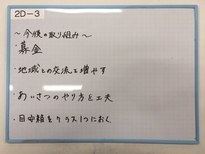 2D-3
〜今後の取り組み〜
・募金
・地域との交流を増やす
・あいさつのやり方を工夫
・目安箱をクラス1つにおく